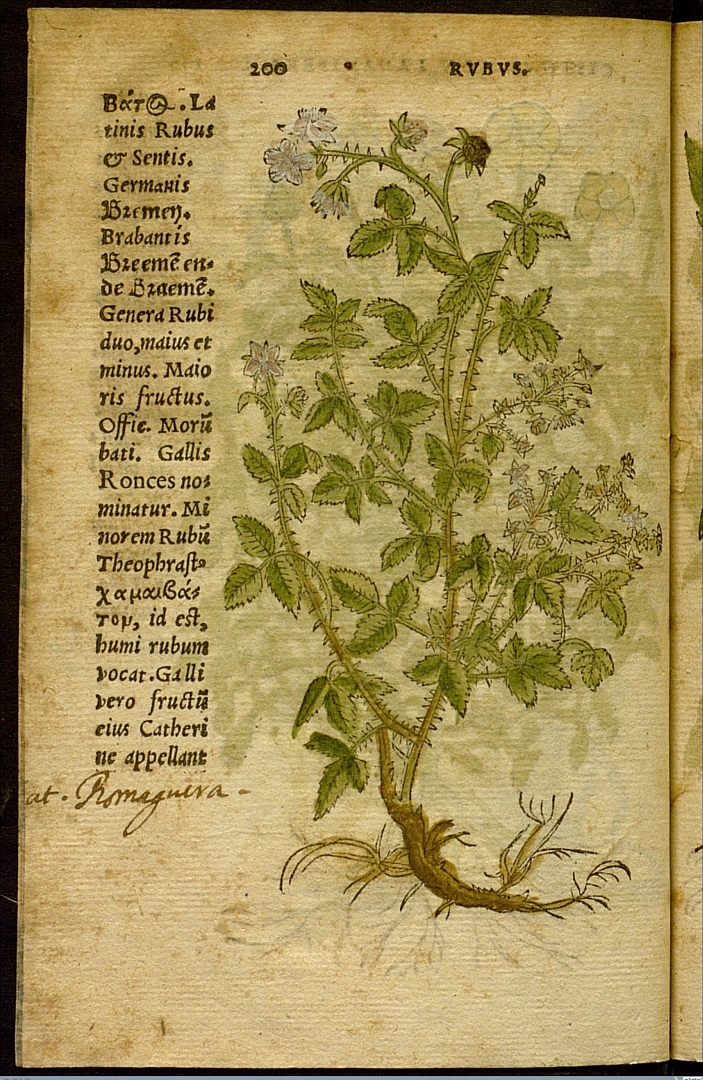 200 RVBVS.
Βάτος. La
tinis Rubus
& Sentis.
Germanis
Bremen.
Brabantis
Breemẽ en⸗
de Braemẽ.
Genera Rubi
duo, maius et
minus. Maio
ris fructus.
Offic. Morũ
bati. Gallis
Ronces no⸗
minatur. Mi
norem Rubũ
Theophraſt⸗
χαμαιβά⸗
τον, id est,
humi rubum
vocat. Galli
vero fructũ
eius Catheri
ne appellant
at. Romaguera -